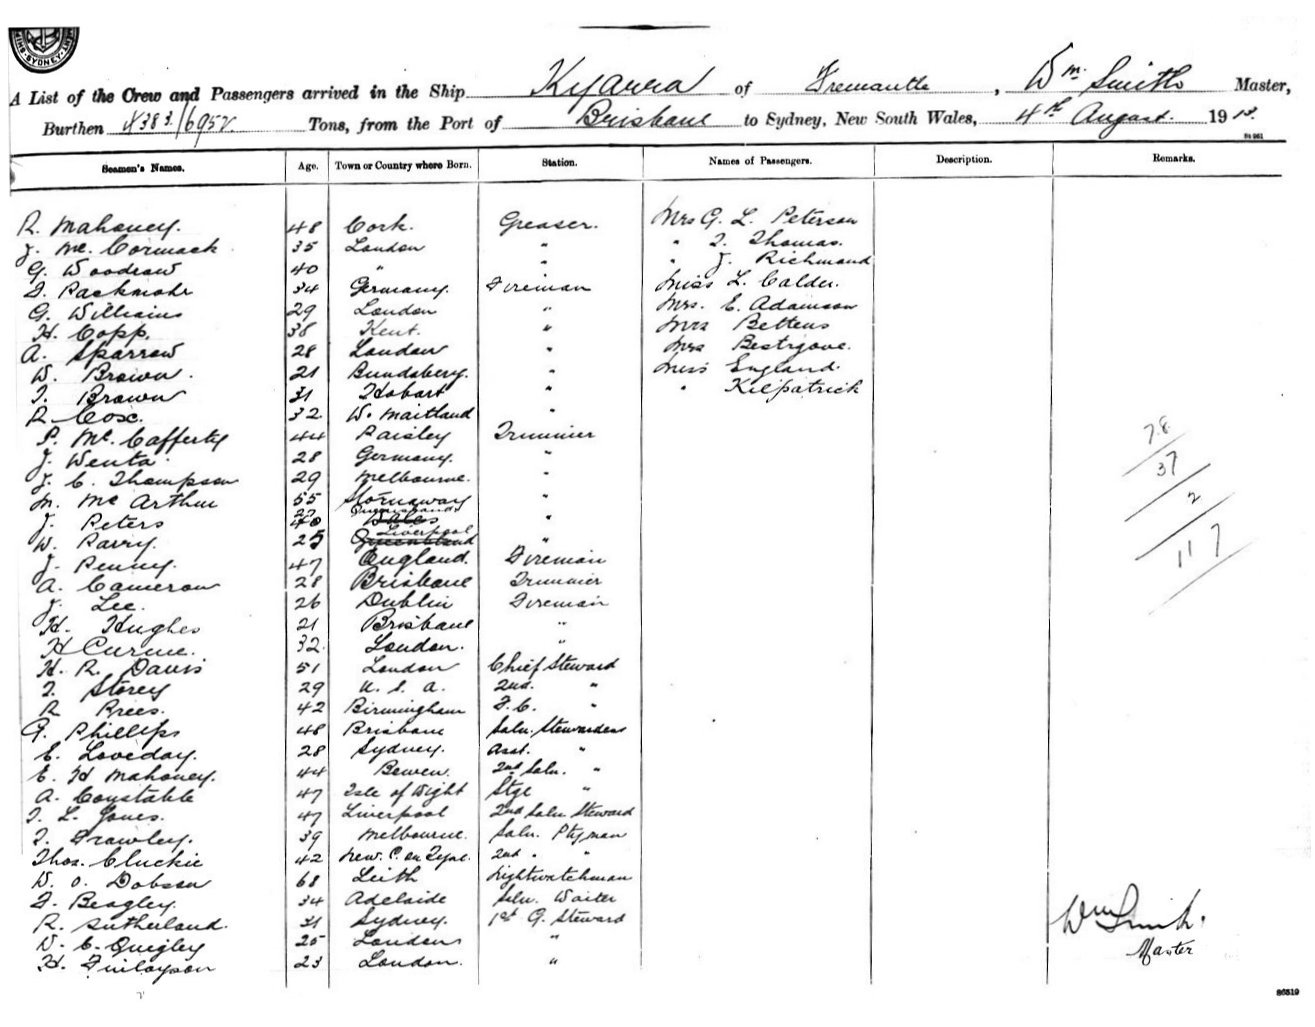 SYDNEY
A List of the Crew and Passengers arrived in the Ship Kyarra of Fremantle, Wm. Smith Master,
Burthen 4383/6952 Tons, from the Port of Brisbane to Sydney, New South Wales, 4th August 1913.
Seamen's Names. Age. Town or Country where Born. Station. Names of Passengers. Description. Remarks.
R. Mahoney. 48 Cork. Greaser. Mrs G. L. Peterson
J. Mc. Cormack 35 London " " T. Thomas.
G. Woodrow 40 " " " J. Richmond
F. Packmohr 34 Germany. Fireman Miss L. Calder.
G. Williams 29 London " Mrs. E. Adamson
H. Copp. 38 Kent. " Mrs Bettens
A. Sparrow 28 London " Mrs Bestgove.
W. Brown. 21 Bundaberg. " Miss England.
T. Brown 31 Hobart " " Kilpatrick
R. Cox. 32 W. Maitland "
P. Mc. Cafferty 44 Paisley Trimmer
J. Wenta. 28 Germany. "
J. C. Thompson 29 Melbourne. "
M. Mc Arthur 55 Stornaway "
J. Peters Queensland "
W. Parry. 25 Liverpool "
J. Penny. 47 England. Fireman
A. Cameron 28 Brisbane Trimmer
J. Lee. 26 Dublin Fireman
H. Hughes 21 Brisbane "
H Curme. 32. London. "
H. R. Davis 51 London Chief Steward
T. Storey 29 U. S. A. 2nd. "
R Rees. 42 Birmingham F. C. "
G. Phillips 48 Brisbane Saln. Stewardess
E. Loveday. 28 Sydney. Asst. "
E. H Mahoney. 44 Bowen. 2nd Saln. "
A. Constable 47 Isle of Wight Stge "
T. L. Jones. 47 Liverpool 2nd Saln Steward
T. Frawley. 39 Melbourne. Saln. Ptyman
Thos. Cluckie 42 New. C. on Tyne. 2nd " "
W. O. Dobson 68 Leith Nightwatchman
F. Beagley. 34 Adelaide Saln. Waiter
R. Sutherland. 31 Sydney. 1st G. Steward
W. C. Quigley 25 London "
H. Finlayson 23 London. "
78
37
2
117
Wm Smith.
Master
86519